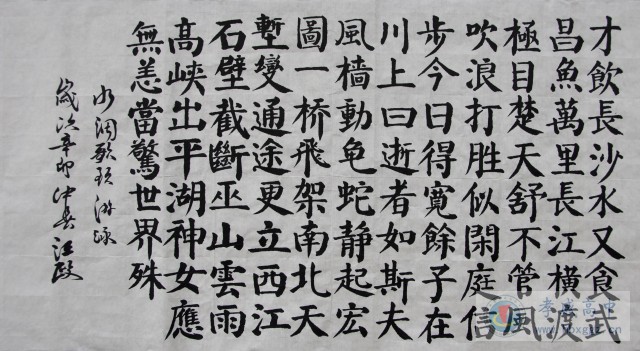 才飲長沙水又食武
昌魚萬里長江橫渡
極目楚天舒不管風
吹浪打胜似閑庭信
步今日得寬餘子在
川上曰逝者如斯夫
風樯動龟蛇静起宏
圖一桥飛架南北天
塹變通途更立西江
石壁截斷巫山雲雨
高峡出平湖神女應
無恙當驚世界殊
水调歌頭游泳
歲次辛卯仲春江